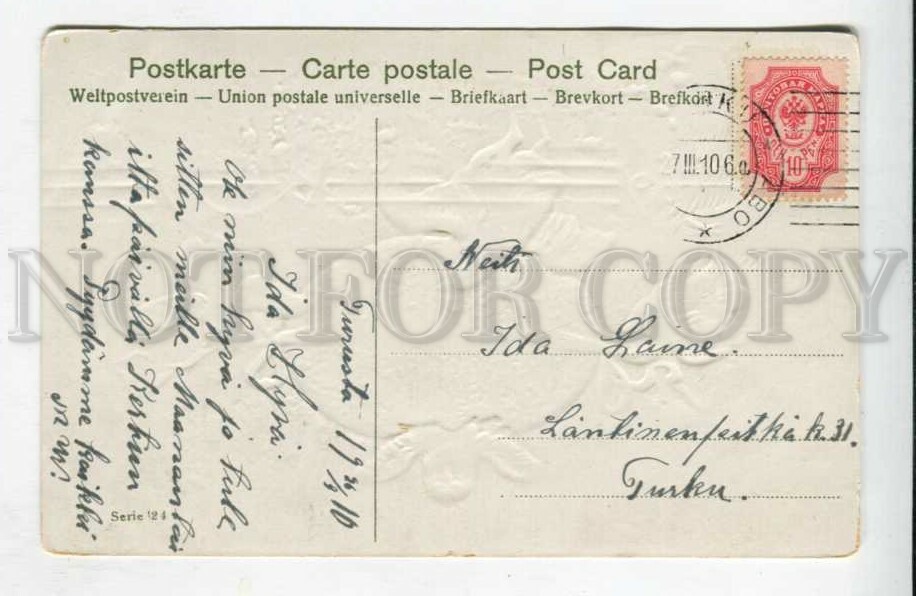 Postkarte — Carte postale — Post Card
Weltpostverein — Union postale universelle — Briefkaart — Brevkort — Brefkort
7.III.10 6
BO
ПОЧТОВАЯ МАРКА
10 PEN
Turusta
Ida Hyvä.
Ole niin hyvä ja tule
sitten meille Maanantai
iltapäivällä Kerttun
kanssa. Pyydämme kaikki
Neiti
Ida Laine.
Läntinenpitkäk. 31.
Turku.
Serie 124
NOT FOR COPY